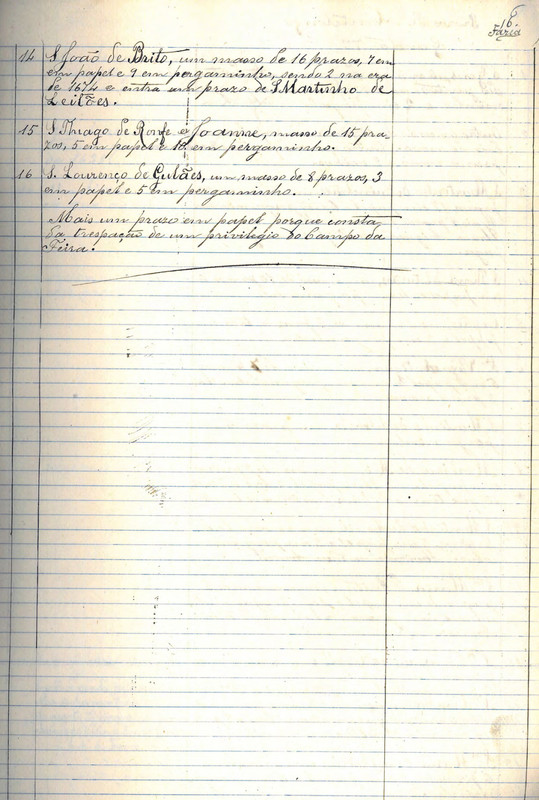 16
Faria
14 S. João de Brito, um masso de 16 prazos, 7 em
em papel e 9 em pergaminho, sendo 2 na era
de 1674 e entra um prazo de S Martinho de
Leitões.
15 S Thiago de Ronfe e Joanne, masso de 15 pra-
zos, 5 em papel e 10 em pergaminho.
16 S. Lourenço de Gulães, um masso de 8 prazos, 3
em papel e 5 em pergaminho.
Mais um prazo em papel porque consta
da trespação de um privilegio do Campo da
Feira.